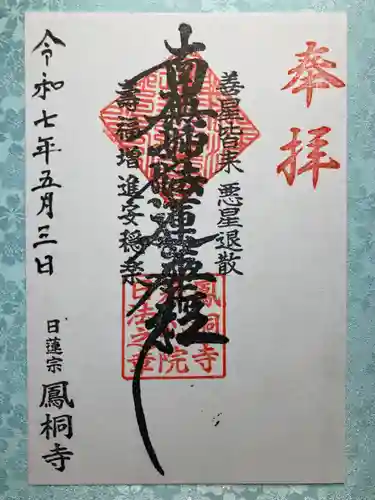 奉拝
善星皆来 悪星退散
南無妙法蓮華経
壽福増進安穏楽
令和七年五月三日
日蓮宗 鳳桐寺
鳳桐寺